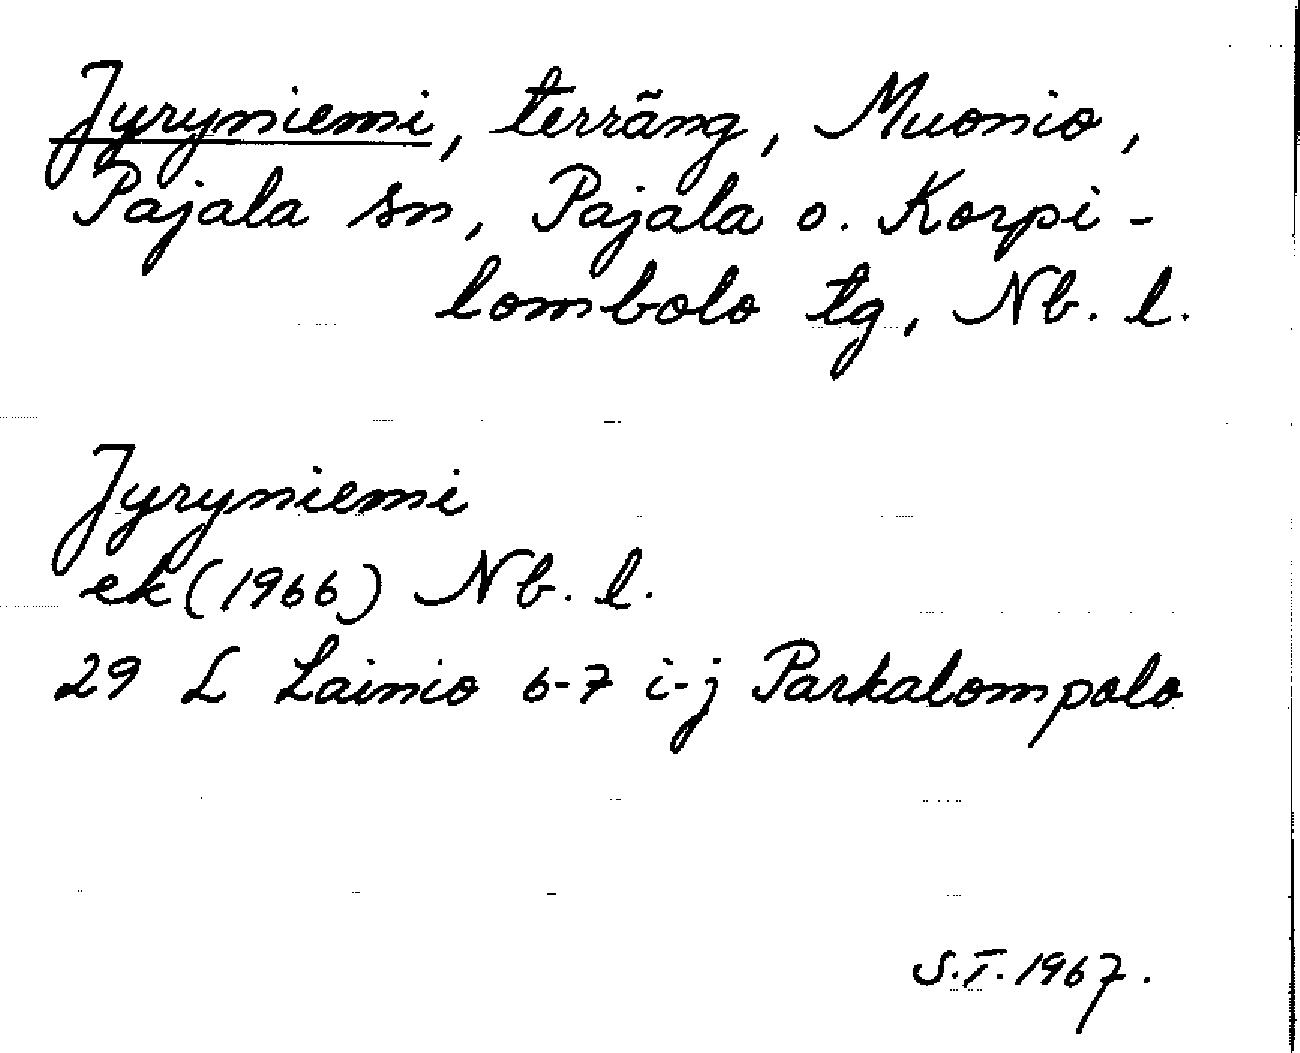 Jyryniemi, terräng, Muonio,
Pajala sn, Pajala o. Korpi-
lombolo tg, Nb. l.
Jyryniemi
ek (1966) Nb. l.
29 L Lainio 6-7 i-j Parkalompolo
S.T. 1967.